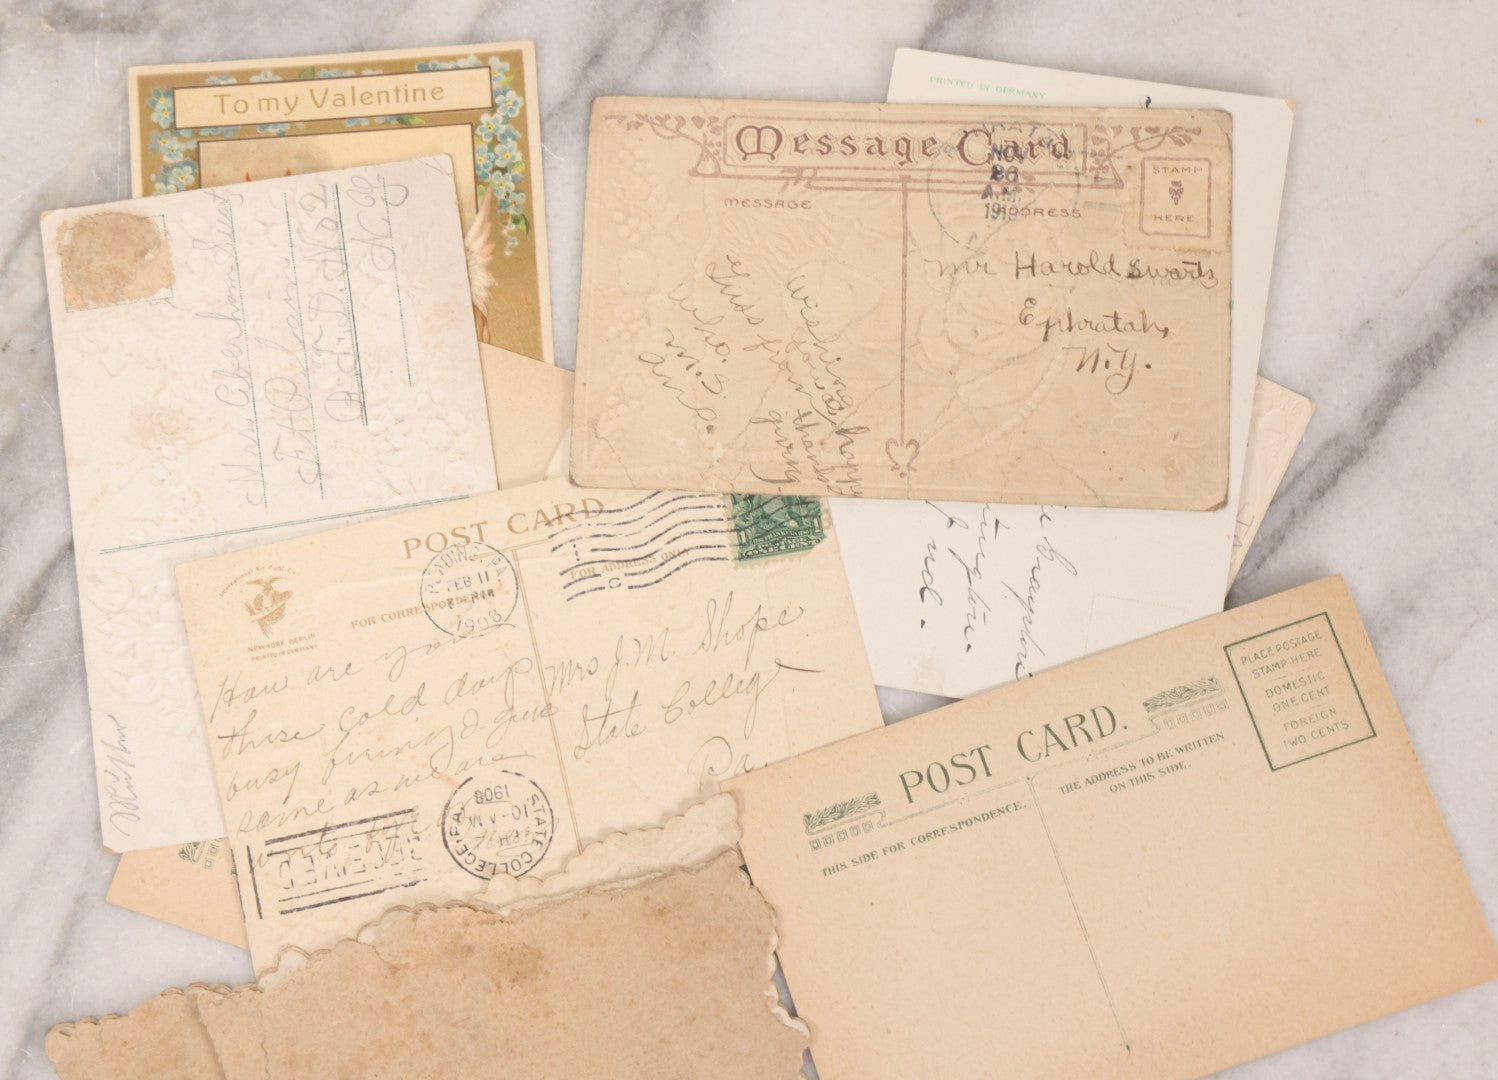 To my Valentine
PRINTED IN GERMANY
Message Card
NOV
26
A.M.
MESSAGE
ADDRESS
STAMP
HERE
Mr Harold Swarts
Ephratah,
N.Y.
Wishing
you a happy
thanks
giving
from
Guss
who.
M.S.
POST CARD
FOR CORRESPONDENCE
FOR ADDRESS ONLY
READING, PA.
FEB 11
1908
International Art Pub. Co.
NEW YORK BERLIN
PRINTED IN GERMANY
How are you
these cold days
busy firing I guess
same as we are
Mrs J.M. Shope
State College
Pa.
STATE COLLEGE, PA.
10-AM
1908
RECEIVED
POST CARD.
THIS SIDE FOR CORRESPONDENCE.
THE ADDRESS TO BE WRITTEN
ON THIS SIDE.
PLACE POSTAGE
STAMP HERE
DOMESTIC
ONE CENT
FOREIGN
TWO CENTS